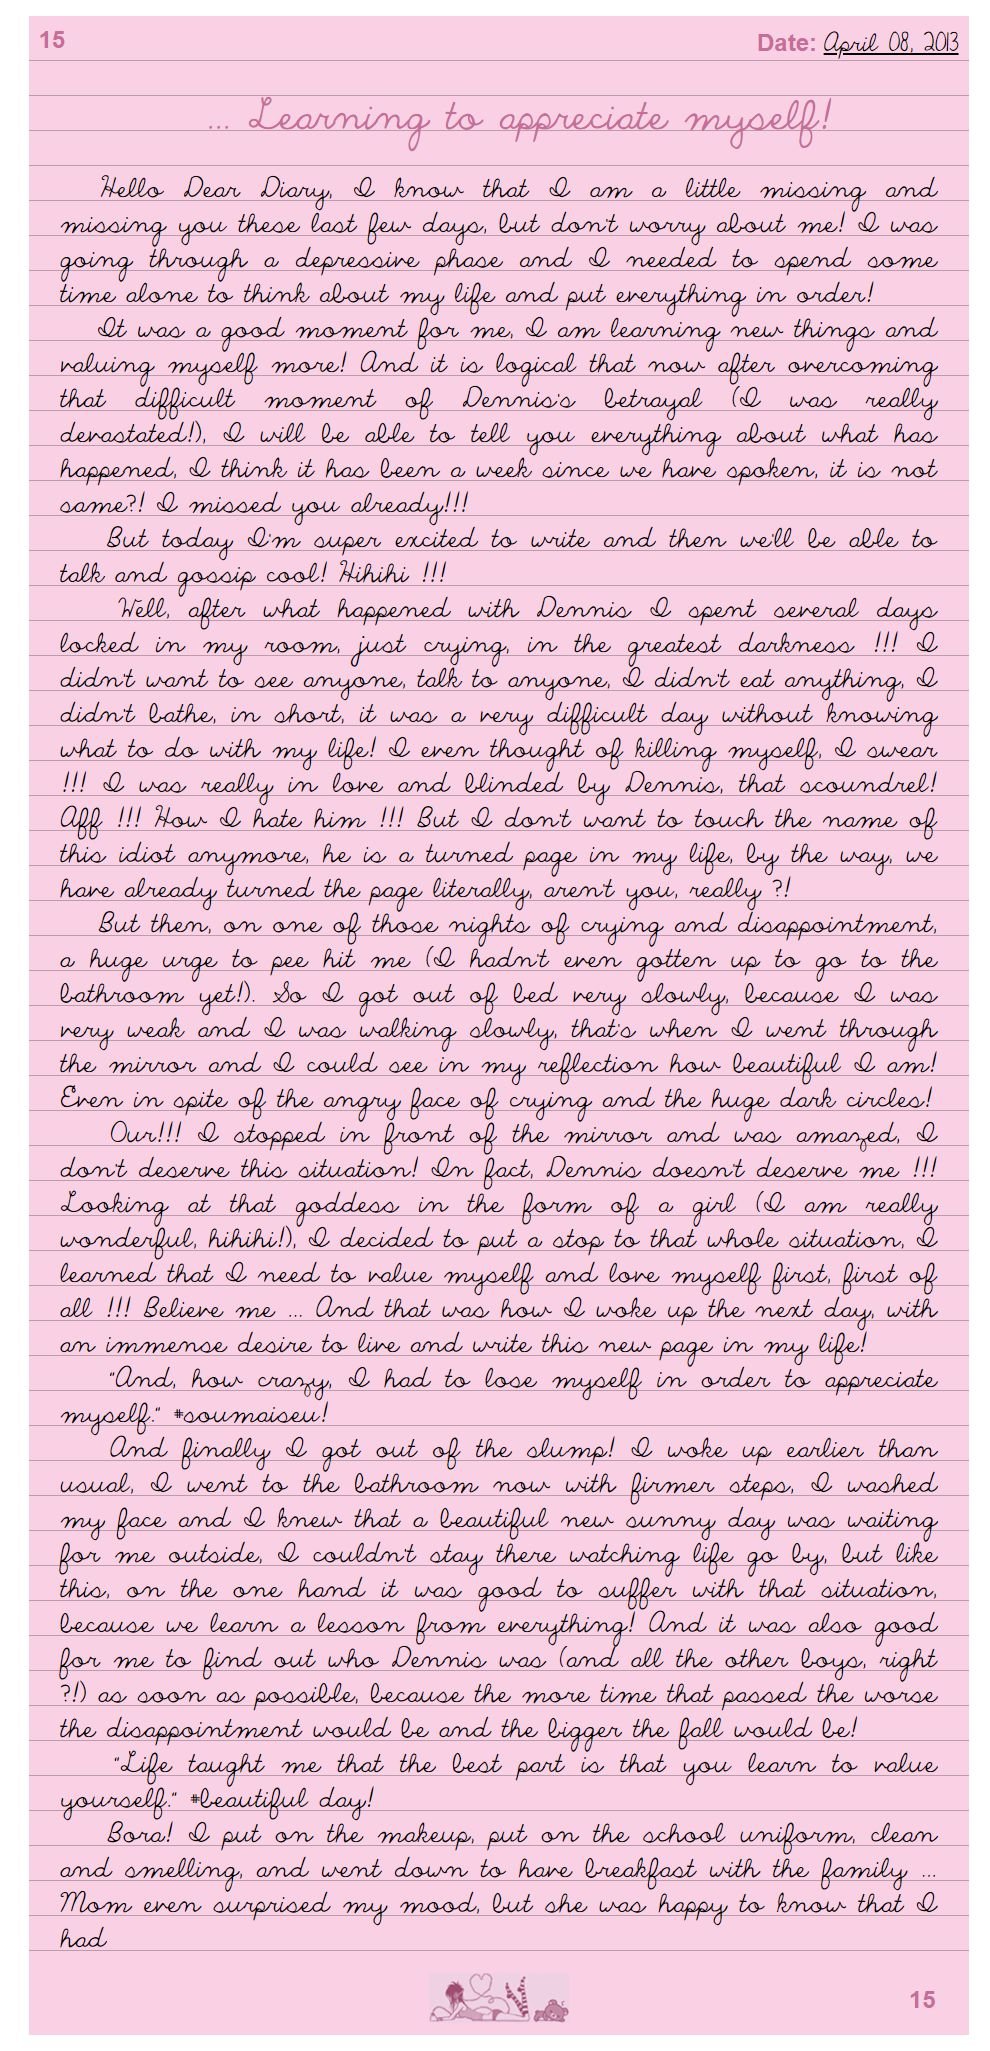 15
Date: April 08, 2013
... Learning to appreciate myself!
Hello Dear Diary, I know that I am a little missing and
missing you these last few days, but don't worry about me! I was
going through a depressive phase and I needed to spend some
time alone to think about my life and put everything in order!
It was a good moment for me, I am learning new things and
valuing myself more! And it is logical that now after overcoming
that difficult moment of Dennis's betrayal (I was really
devastated!), I will be able to tell you everything about what has
happened, I think it has been a week since we have spoken, it is not
same?! I missed you already!!!
But today I'm super excited to write and then we'll be able to
talk and gossip cool! Hihihi !!!
Well, after what happened with Dennis I spent several days
locked in my room, just crying, in the greatest darkness !!! I
didn't want to see anyone, talk to anyone, I didn't eat anything, I
didn't bathe, in short, it was a very difficult day without knowing
what to do with my life! I even thought of killing myself, I swear
!!! I was really in love and blinded by Dennis, that scoundrel!
Aff !!! How I hate him !!! But I don't want to touch the name of
this idiot anymore, he is a turned page in my life, by the way, we
have already turned the page literally, aren't you, really ?!
But then, on one of those nights of crying and disappointment,
a huge urge to pee hit me (I hadn't even gotten up to go to the
bathroom yet!). So I got out of bed very slowly, because I was
very weak and I was walking slowly, that's when I went through
the mirror and I could see in my reflection how beautiful I am!
Even in spite of the angry face of crying and the huge dark circles!
Our!!! I stopped in front of the mirror and was amazed, I
don't deserve this situation! In fact, Dennis doesn't deserve me !!!
Looking at that goddess in the form of a girl (I am really
wonderful, hihihi!), I decided to put a stop to that whole situation, I
learned that I need to value myself and love myself first, first of
all !!! Believe me ... And that was how I woke up the next day, with
an immense desire to live and write this new page in my life!
"And, how crazy, I had to lose myself in order to appreciate
myself." #soumaiseu!
And finally I got out of the slump! I woke up earlier than
usual, I went to the bathroom now with firmer steps, I washed
my face and I knew that a beautiful new sunny day was waiting
for me outside, I couldn't stay there watching life go by, but like
this, on the one hand it was good to suffer with that situation,
because we learn a lesson from everything! And it was also good
for me to find out who Dennis was (and all the other boys, right
?!) as soon as possible, because the more time that passed the worse
the disappointment would be and the bigger the fall would be!
"Life taught me that the best part is that you learn to value
yourself." #beautiful day!
Bora! I put on the makeup, put on the school uniform, clean
and smelling, and went down to have breakfast with the family ...
Mom even surprised my mood, but she was happy to know that I
had
15